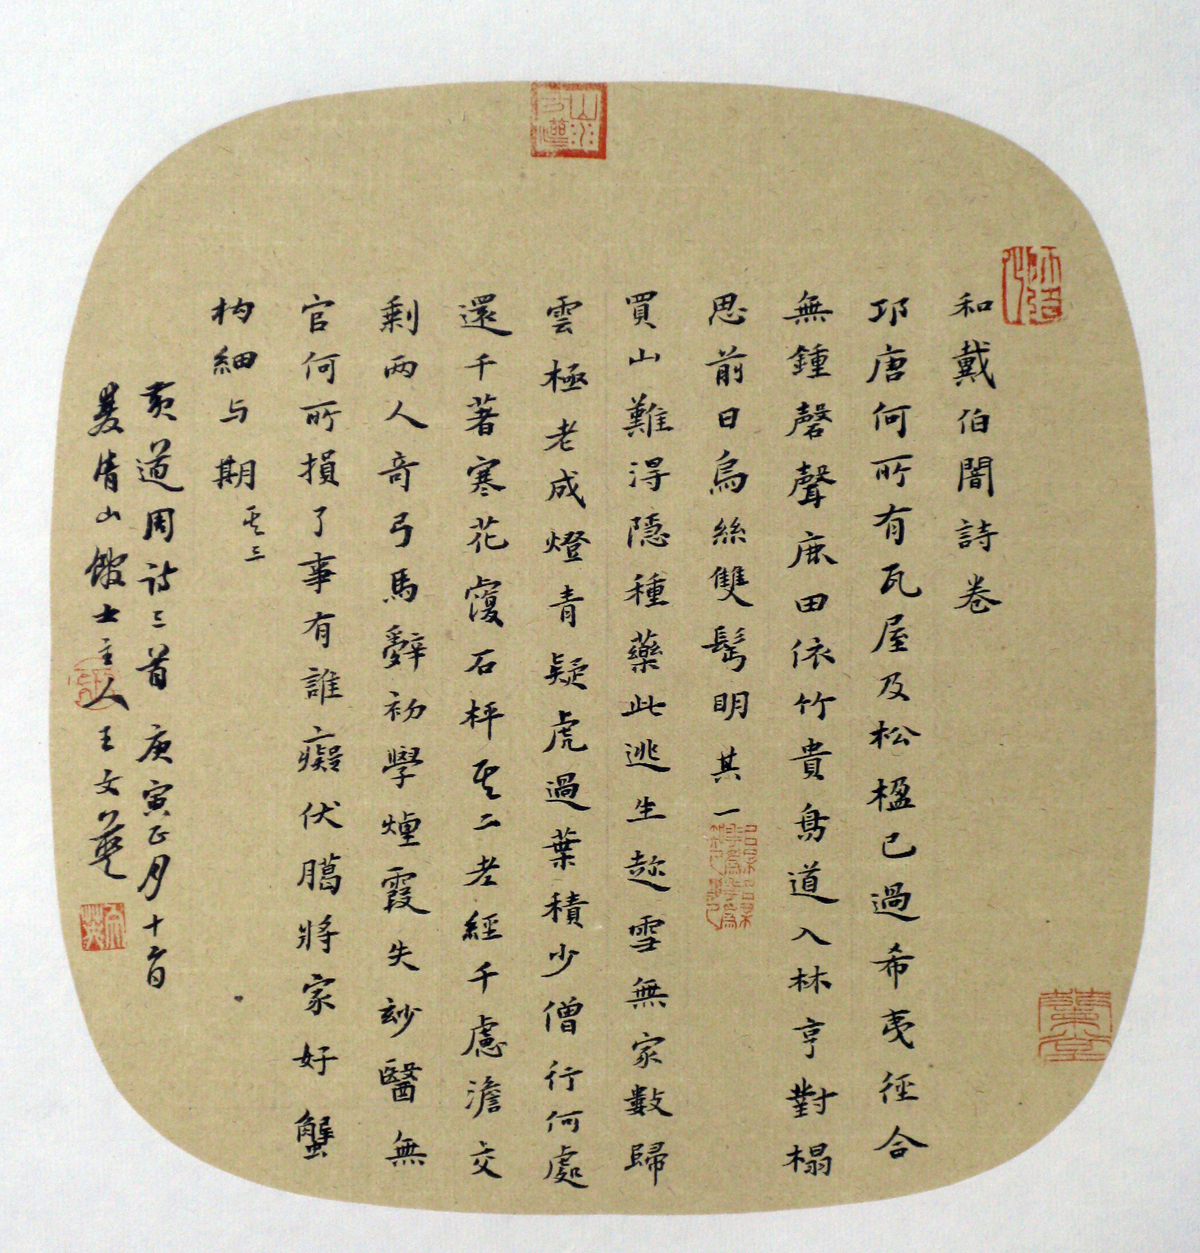 和戴伯闇詩卷
邛唐何所有瓦屋及松楹已過希夷徑合
無鍾磬聲鹿田依竹貴鳥道入林亨對榻
思前日烏絲雙髩明其一
買山難得隱種藥此逃生趂雪無家數歸
雲極老成燈青疑虎過葉積少僧行何處
還千著寒花覆石枰其二老經千慮澹交
剩兩人奇弓馬辭初學煙霞失妙醫無
官何所損了事有誰癡伏臈將家好蟹
杓細与期其三
黃道周詩三首庚寅正月十六日
清山館士主人王文英